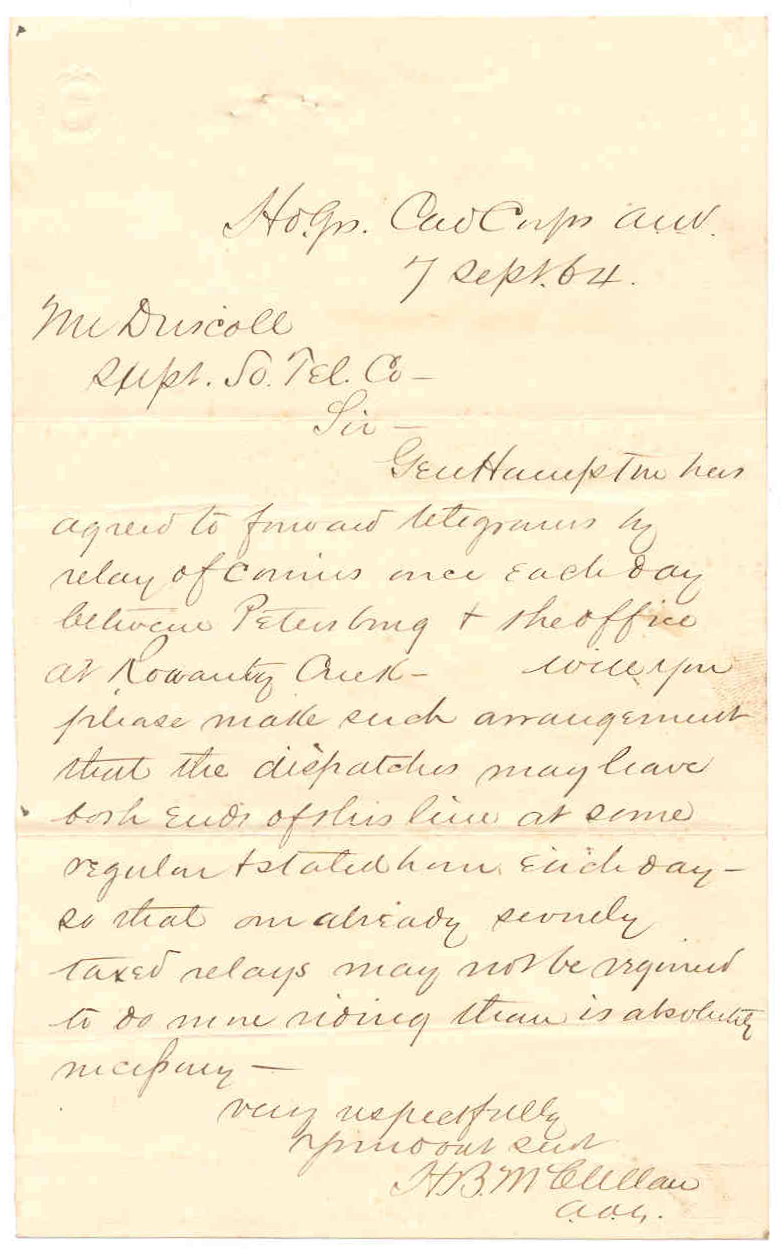 Hd.Qrs. Cav Corps ANV.
7 Sept. 64.
Mr Driscoll
Supt. So. Tel. Co —
Sir —
Gen Hampton has
agreed to forward telegrams by
relay of couriers once each day
between Petersburg & the office
at Rowanty Creek — will you
please make such arrangement
that the dispatches may leave
both ends of this line at some
regular & stated hour each day —
so that our already severely
taxed relays may not be required
to do more riding than is absolutely
necessary —
very respectfully
your obt servt
H.B. McClellan
A.A.G.